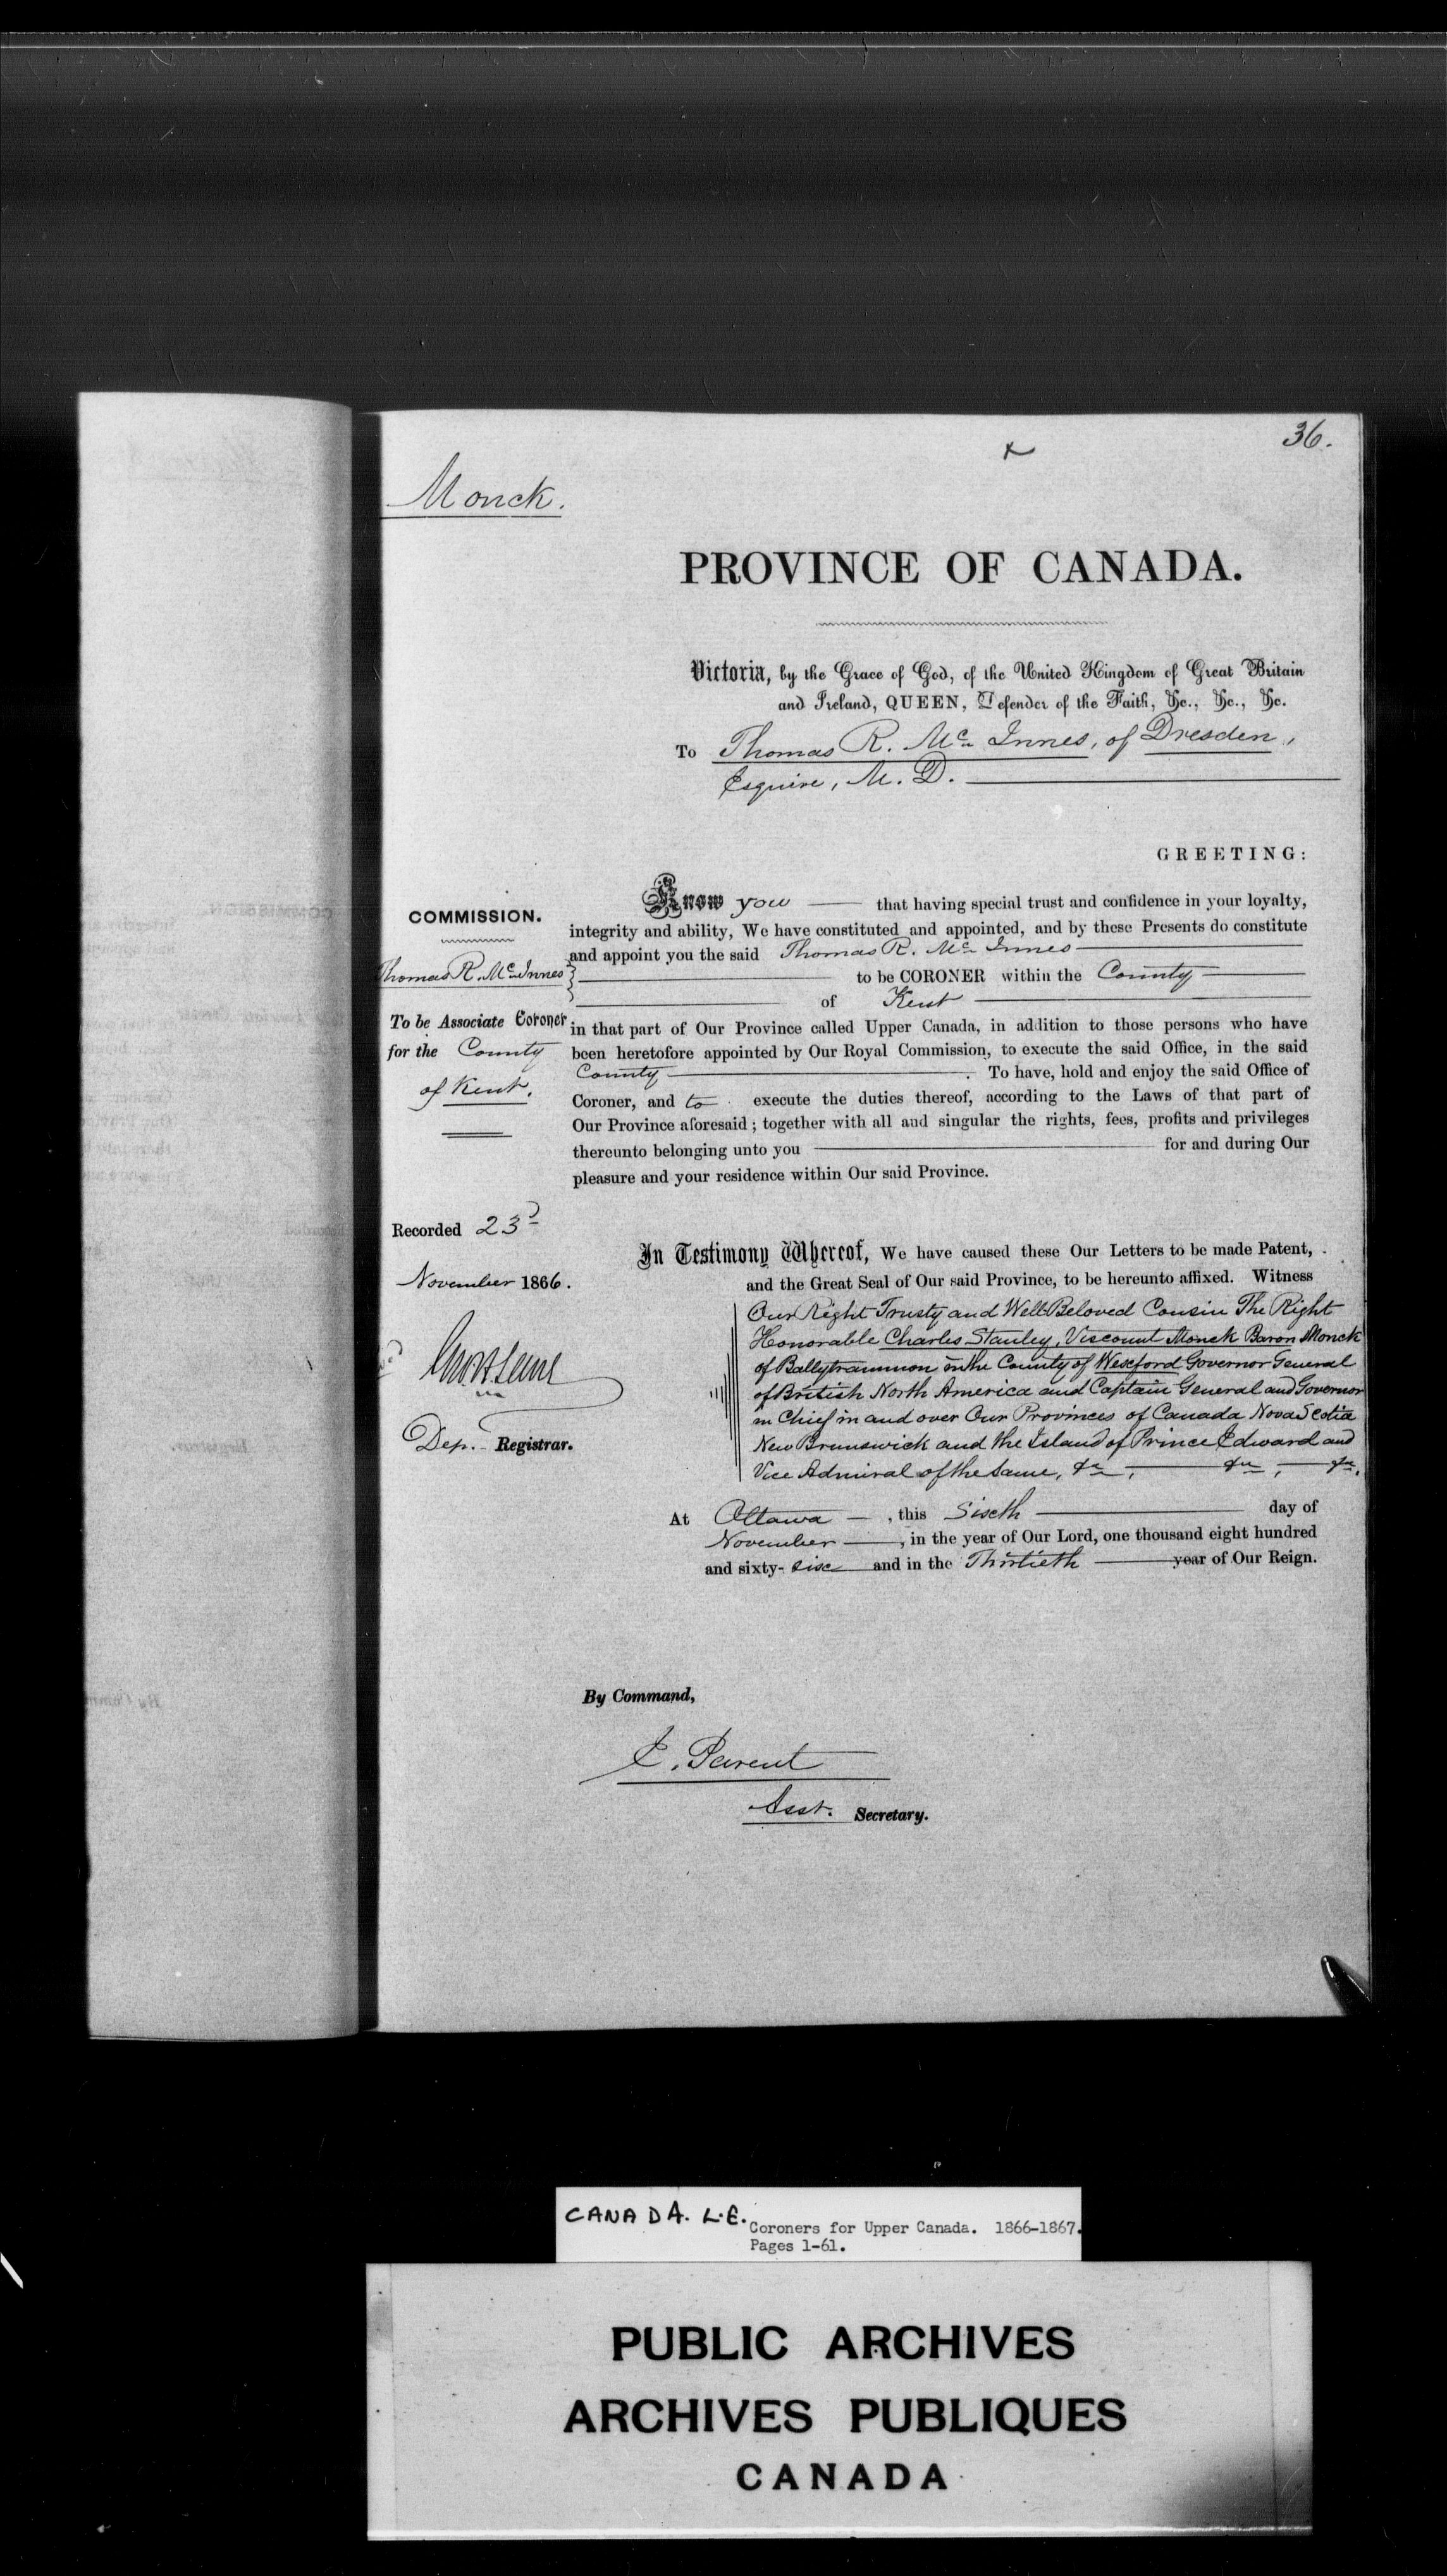 36.
Monck.
PROVINCE OF CANADA.
Victoria, by the Grace of God, of the United Kingdom of Great Britain
and Ireland, QUEEN, Defender of the Faith, &c., &c., &c.
To Thomas R. Mc Innes, of Dresden,
Esquire, M. D.
GREETING:
COMMISSION.
Thomas R. Mc Innes
To be Associate Coroner
for the County
of Kent.
Know you that having special trust and confidence in your loyalty,
integrity and ability, We have constituted and appointed, and by these Presents do constitute
and appoint you the said Thomas R. Mc Innes
to be CORONER within the County
of Kent
in that part of Our Province called Upper Canada, in addition to those persons who have
been heretofore appointed by Our Royal Commission, to execute the said Office, in the said
County . To have, hold and enjoy the said Office of
Coroner, and to execute the duties thereof, according to the Laws of that part of
Our Province aforesaid; together with all and singular the rights, fees, profits and privileges
thereunto belonging unto you for and during Our
pleasure and your residence within Our said Province.
Recorded 23d
November 1866.
Dep. Registrar.
In Testimony Whereof, We have caused these Our Letters to be made Patent,
and the Great Seal of Our said Province, to be hereunto affixed. Witness
Our Right Trusty and Well Beloved Cousin The Right
Honorable Charles Stanley, Viscount Monck Baron Monck
of Ballytrammon in the County of Wexford Governor General
of British North America and Captain General and Governor
in Chief in and over Our Provinces of Canada Nova Scotia
New Brunswick and the Island of Prince Edward and
Vice Admiral of the Same, &c, &c, &c.
At Ottawa , this Sixth day of
November , in the year of Our Lord, one thousand eight hundred
and sixty- six and in the Thirtieth year of Our Reign.
By Command,
E. Parent
Asst. Secretary.
CANADA. L.E. Coroners for Upper Canada. 1866-1867.
Pages 1-61.
PUBLIC ARCHIVES
ARCHIVES PUBLIQUES
CANADA